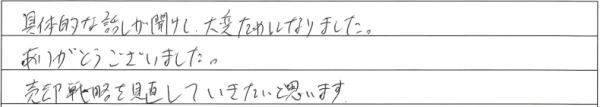 具体的な話しが聞けし、大変ためになりました。
ありがとうございました。
売却戦略を見直していきたいと思います